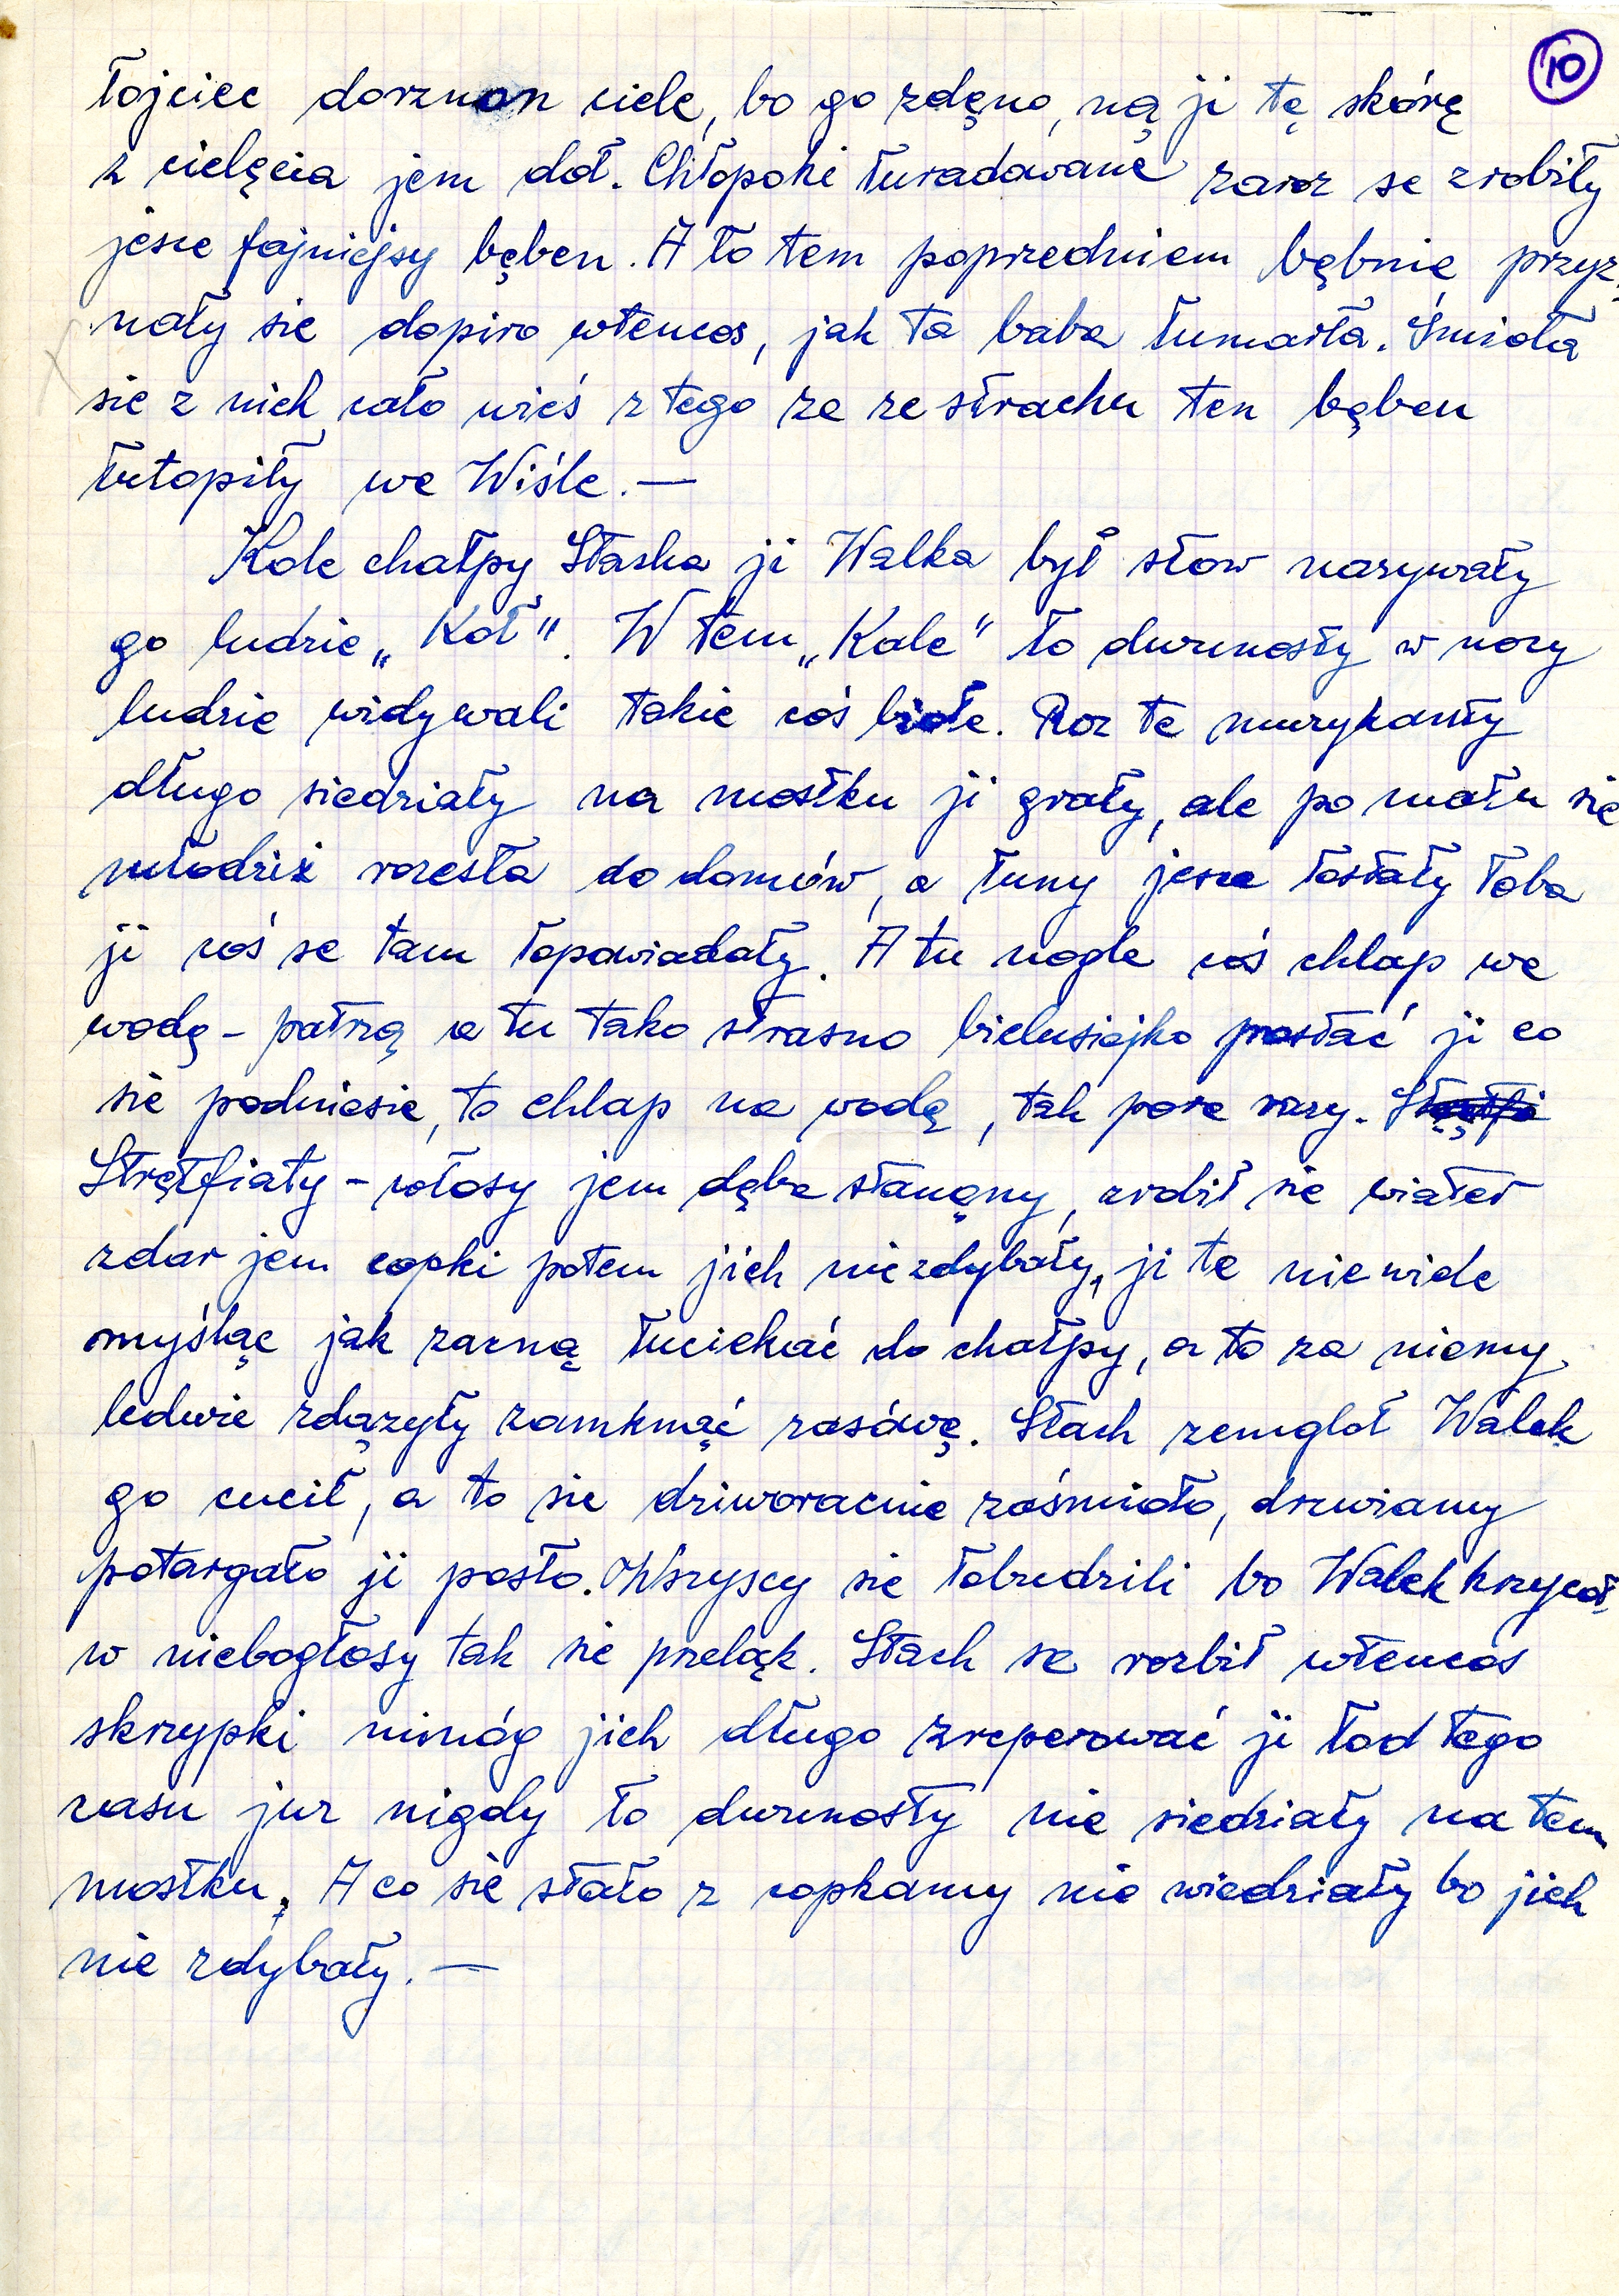 10
łojciec dorznon ciele, bo go zdęno, ną ji tę skórę
z cielęcia jem doł. Chłopoki łuradowane zaroz se zrobiły
jesce fajniejsy bęben. A ło tem poprzedniem bębnie przyz-
nały sie dopiro wtencos, jak ta baba łumarła. Śmioła
sie z nich cało wieś z tego ze ze strachu ten bęben
łutopiły we Wiśle. —
Kole chałpy Staska ji Walka był stow nazywały
go ludzie „Koł". W tem „Kole" to dwunosty w nocy
ludzie widywali takie coś biołe. Roz te muzykanty
długo siedziały na mostku ji grały, ale pomału sie
młodziż rozesła do domów, a łuny jesce łostały łoba
ji coś se tam łopowiadały. A tu nogle coś chlap we
wodę - patrzą a tu tako straśno bielusiejko postać ji co
sie podniesie, to chlap na wodę, tak pore razy.
Strętfiały - włosy jem dęba stanęny, zrobił sie wiater
zdar jem copki potem jich nie zdybały, ji te nie wiele
myśląc jak zacną łuciekać do chałpy, a to za niemy
ledwie zdązyły zamknąć zasówę. Stach zemgloł Walek
go cucił, a to sie dziworacnie zaśmioło, drzwiamy
potargało ji posło. Wszyscy sie łobudzili bo Walek krzycoł
w niebogłosy tak sie przeląk. Stach se rozbił wtencos
skrzypki nimóg jich długo zreperować ji łod tego
casu juz nigdy to dwunosty nie siedziały na tem
mostku. A co sie stało z copkamy nie wiedziały bo jich
nie zdybały. —